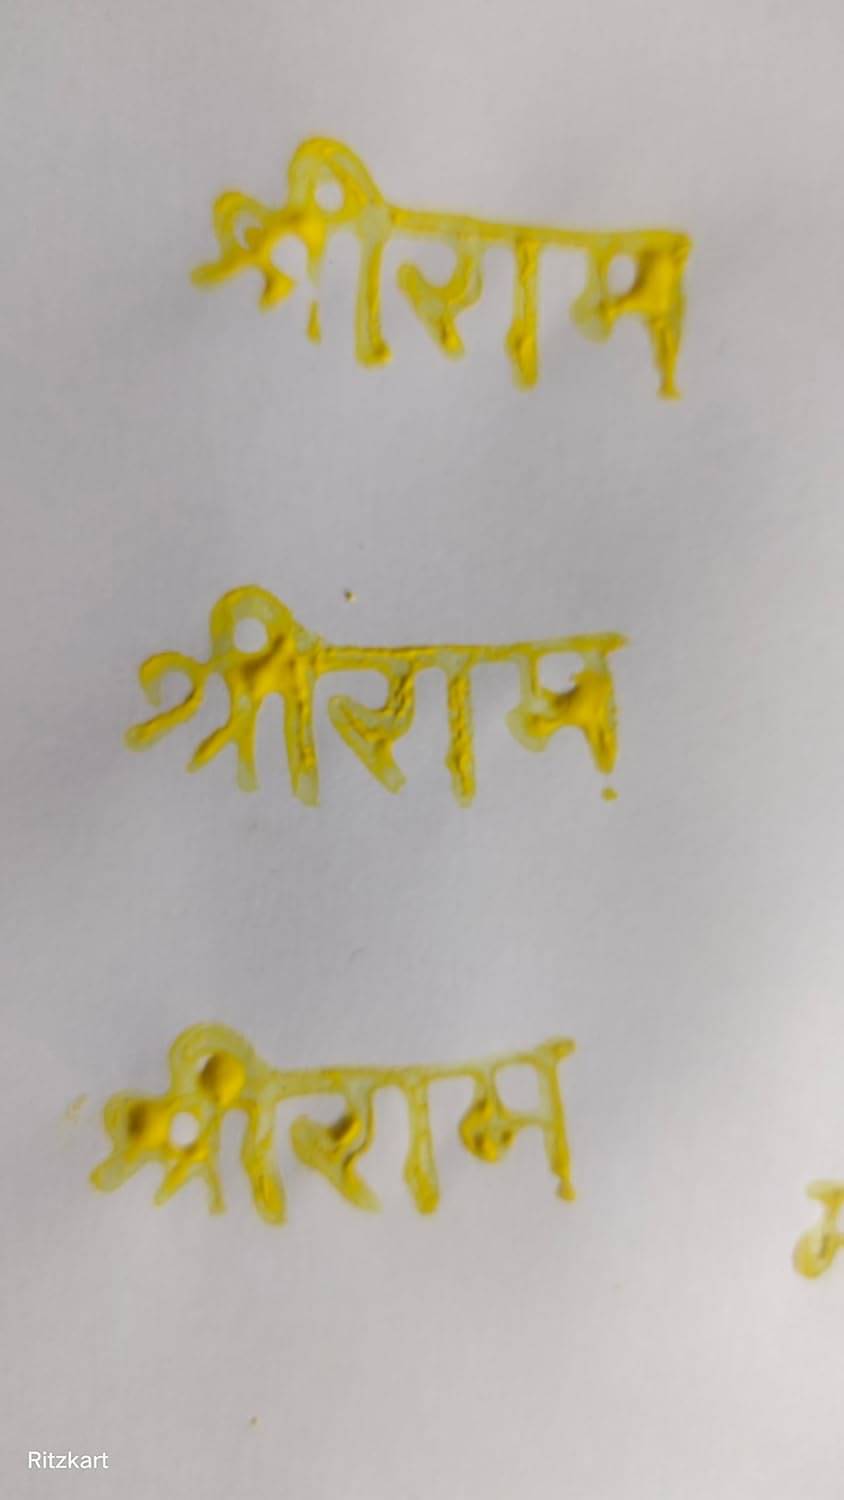 श्रीराम
श्रीराम
श्रीराम
Ritzkart